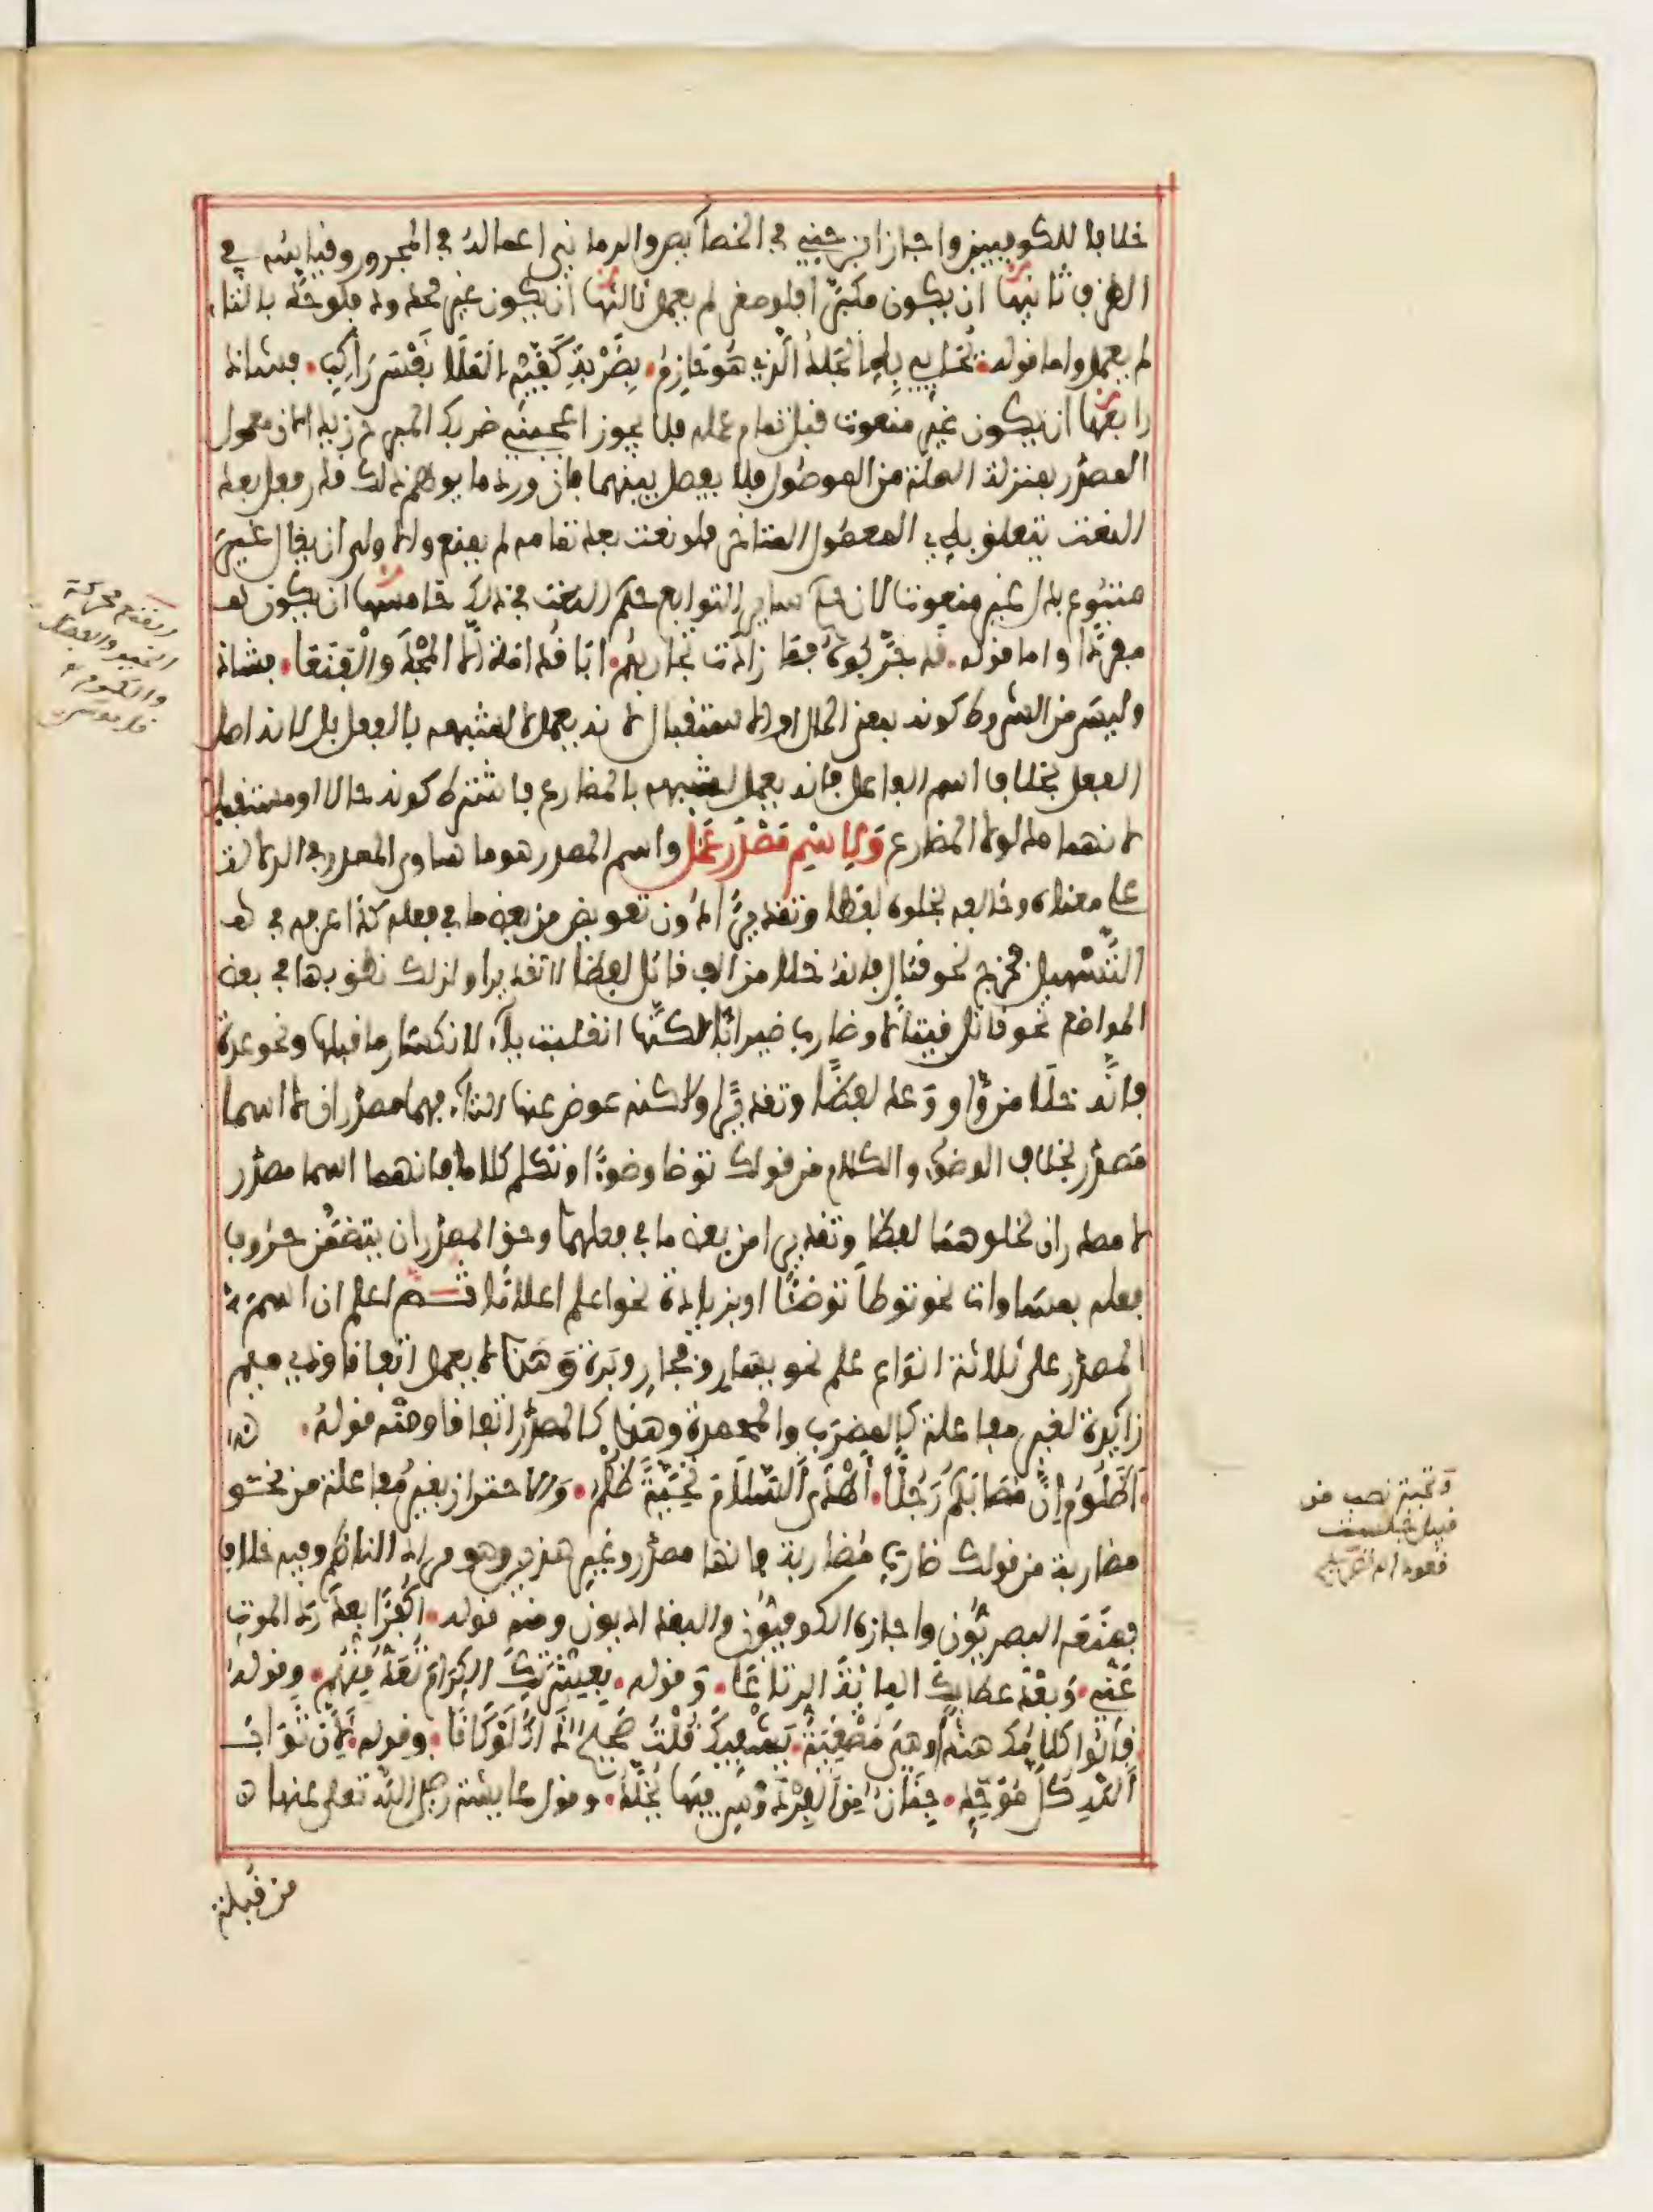 خلافا للكوفيين واجاز ابن جني في الخصآيص والرماني اعماله في المجرور وقياسه في
الظرف ثانيها ان يكون مكبرا فلو صغر لم يعمل ثالثها ان يكون غير محدود فلو حد بالتاء
لم يعمل واما قوله يحايي به الجلد الذي هو حازم بضربة كفيه الملا نفس راكب فشاذ
رابعها ان يكون غير منعوت قبل تمام عمله فلا يجوز اعجبني ضربك المبرح زيدا لان معمول
المصدر بمنزلة الصلة من الموصول فلا يفصل بينهما فان ورد ما يوهم ذلك قدر فعل بعد
النعت يتعلق به المعمول المتاخر فلو نعت بعد تمامه لم يمنع والاولى ان يقال غير
متبوع بدل غير منعوت لان حكم ساير التوابع حكم النعت في ذلك خامسها ان يكون
مفردا واما قوله قد جربوه فما زادت تجاربهم ابا قدامة الا المجد والفنعا فشاذ
وليس من الشروط كونه بمعنى الحال او الاستقبال لانه يعمل لا لشبهه بالفعل بل لانه اصل
الفعل بخلاف اسم الفاعل فانه يعمل لشبهه بالمضارع فاشترط كونه حالا او مستقبلا
لانهما مدلولا المضارع ولاسم مصدر عمل واسم المصدر هو ما ساوى المصدر في الدلالة
على معناه وخالفه بخلوه لفظا وتقديرا دون تعويض من بعض ما في فعله كذا عرفه في
التسهيل فخرج نحو قتال فانه خلا من الف قاتل لفظا لا تقديرا ولذلك نطق بها في بعض
المواضع نحو قاتل قيتالا وضارب ضيرابا لكنها انقلبت يآء لانكسار ما قبلها ونحو عدة
فانه خلا من واو وعد لفظا وتقديرا ولكنه عوض عنها التآء فهما مصدران لا اسما
مصدر بخلاف الوضوء والكلام من قولك توضا وضوءا وتكلم كلاما فانهما اسما مصدر
لا مصدران لخلوهما لفظا وتقديرا من بعض ما في فعلهما وحق المصدر ان يتضمن حروف
فعله بمساوات نحو توضا توضئا او بزيادة نحو اعلم اعلاما ثم اعلم ان اسم
المصدر على ثلاثة انواع علم نحو يسار وفجار وبرة وهذا لا يعمل اتفاقا وذي ميم
زائدة لغير مفاعلة كالمضرب والمحمدة وهذا كالمصدر اتفاقا ومنه قوله
اظلوم ان مصابكم رجلا اهدى السلام تحية ظلم والاحتراز بغير مفاعلة من نحو
مضاربة من قولك ضارب مضاربة فانها مصدر وغير هذين وهو مراد الناظم وفيه خلاف
فمنعه البصريون واجازه الكوفيون والبغداديون ومنه قوله اكفرا بعد رد الموت
عني وبعد عطائك المائة الرتاعا وقوله بعشرتك الكرام تعد منهم وقوله
قالوا كلامك هندا وهي مصغية يشفيك قلت صحيح ذاك لو كانا وقوله لان ثواب
الله كل موحد جنان من الفردوس فيها يخلد وقول عائشة رضي الله تعلى عنها
من قبلة
الفنع محركة
الخير والفضل
والكرم
قاموس
وتحية نصب من
قبيل جلست
قعودا